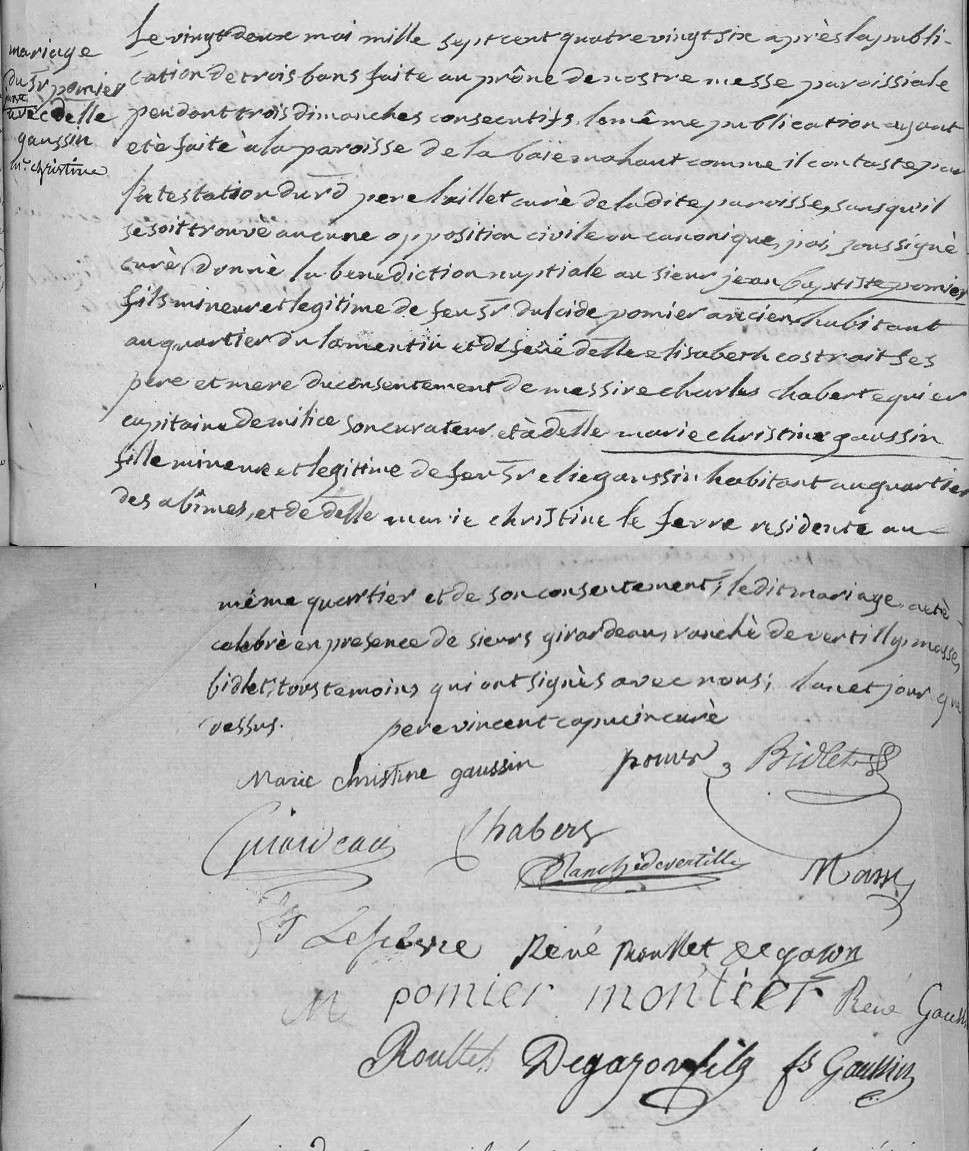 mariage
du Sr pomier
avec delle
gaussin
christine
Le vingt deux mai mille sept cent quatre vingt six après la publi-
cation de trois bans faite au prône de nostre messe paroissiale
pendent trois dimanches consecutifs, la même publication ayant
etè faite à la paroisse de la baïe mahaut comme il contaste par
l'atestation du rd pere curè de la dite paroisse, sans qu'il
se soit trouvè aucune opposition civile ou canonique, j'ai, soussignè
curè, donnè la benediction nuptiale au sieur jean baptiste pomier
fils mineur et legitime de feu Sr dulcide pomier ancien habitant
au quartier du lamentin et de feüe delle elisabeth costrait ses
pere et mere du consentement de messire charles chabert equier
capitaine de milice son curateur, et à delle marie christine gaussin
fille mineure et legitime de feu Sr elie gaussin habitant au quartier
des abîmes, et de delle marie christine le fevre residente au
même quartier et de son consentement; le dit mariage a etè
celebrè en presence de sieurs girardeau, vanchè de vertilly, masse,
bidlet, tous temoins qui ont signès avec nous; l'an et jour que
dessus. pere vincent capucin curè
Marie christine gaussin pomier Bidlet
Girardeau Chabert
de vertilly Masse
Lefebvre René Degazon
M pomier montiert René Gaussin
Roullet Degazon fils fs Gaussin